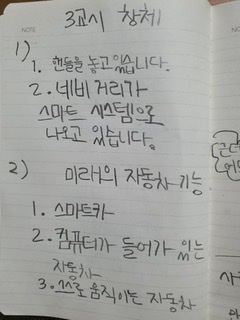 3교시 창체
1)
1. 핸들을 놓고 있습니다.
2. 네비 거리가
스마트 시스템으로
나오고 있습니다.
2) 미래의 자동차 기능
1. 스마트카
2. 컴퓨터가 들어가 있는
자동차
3. 스스로 움직이는 자동차